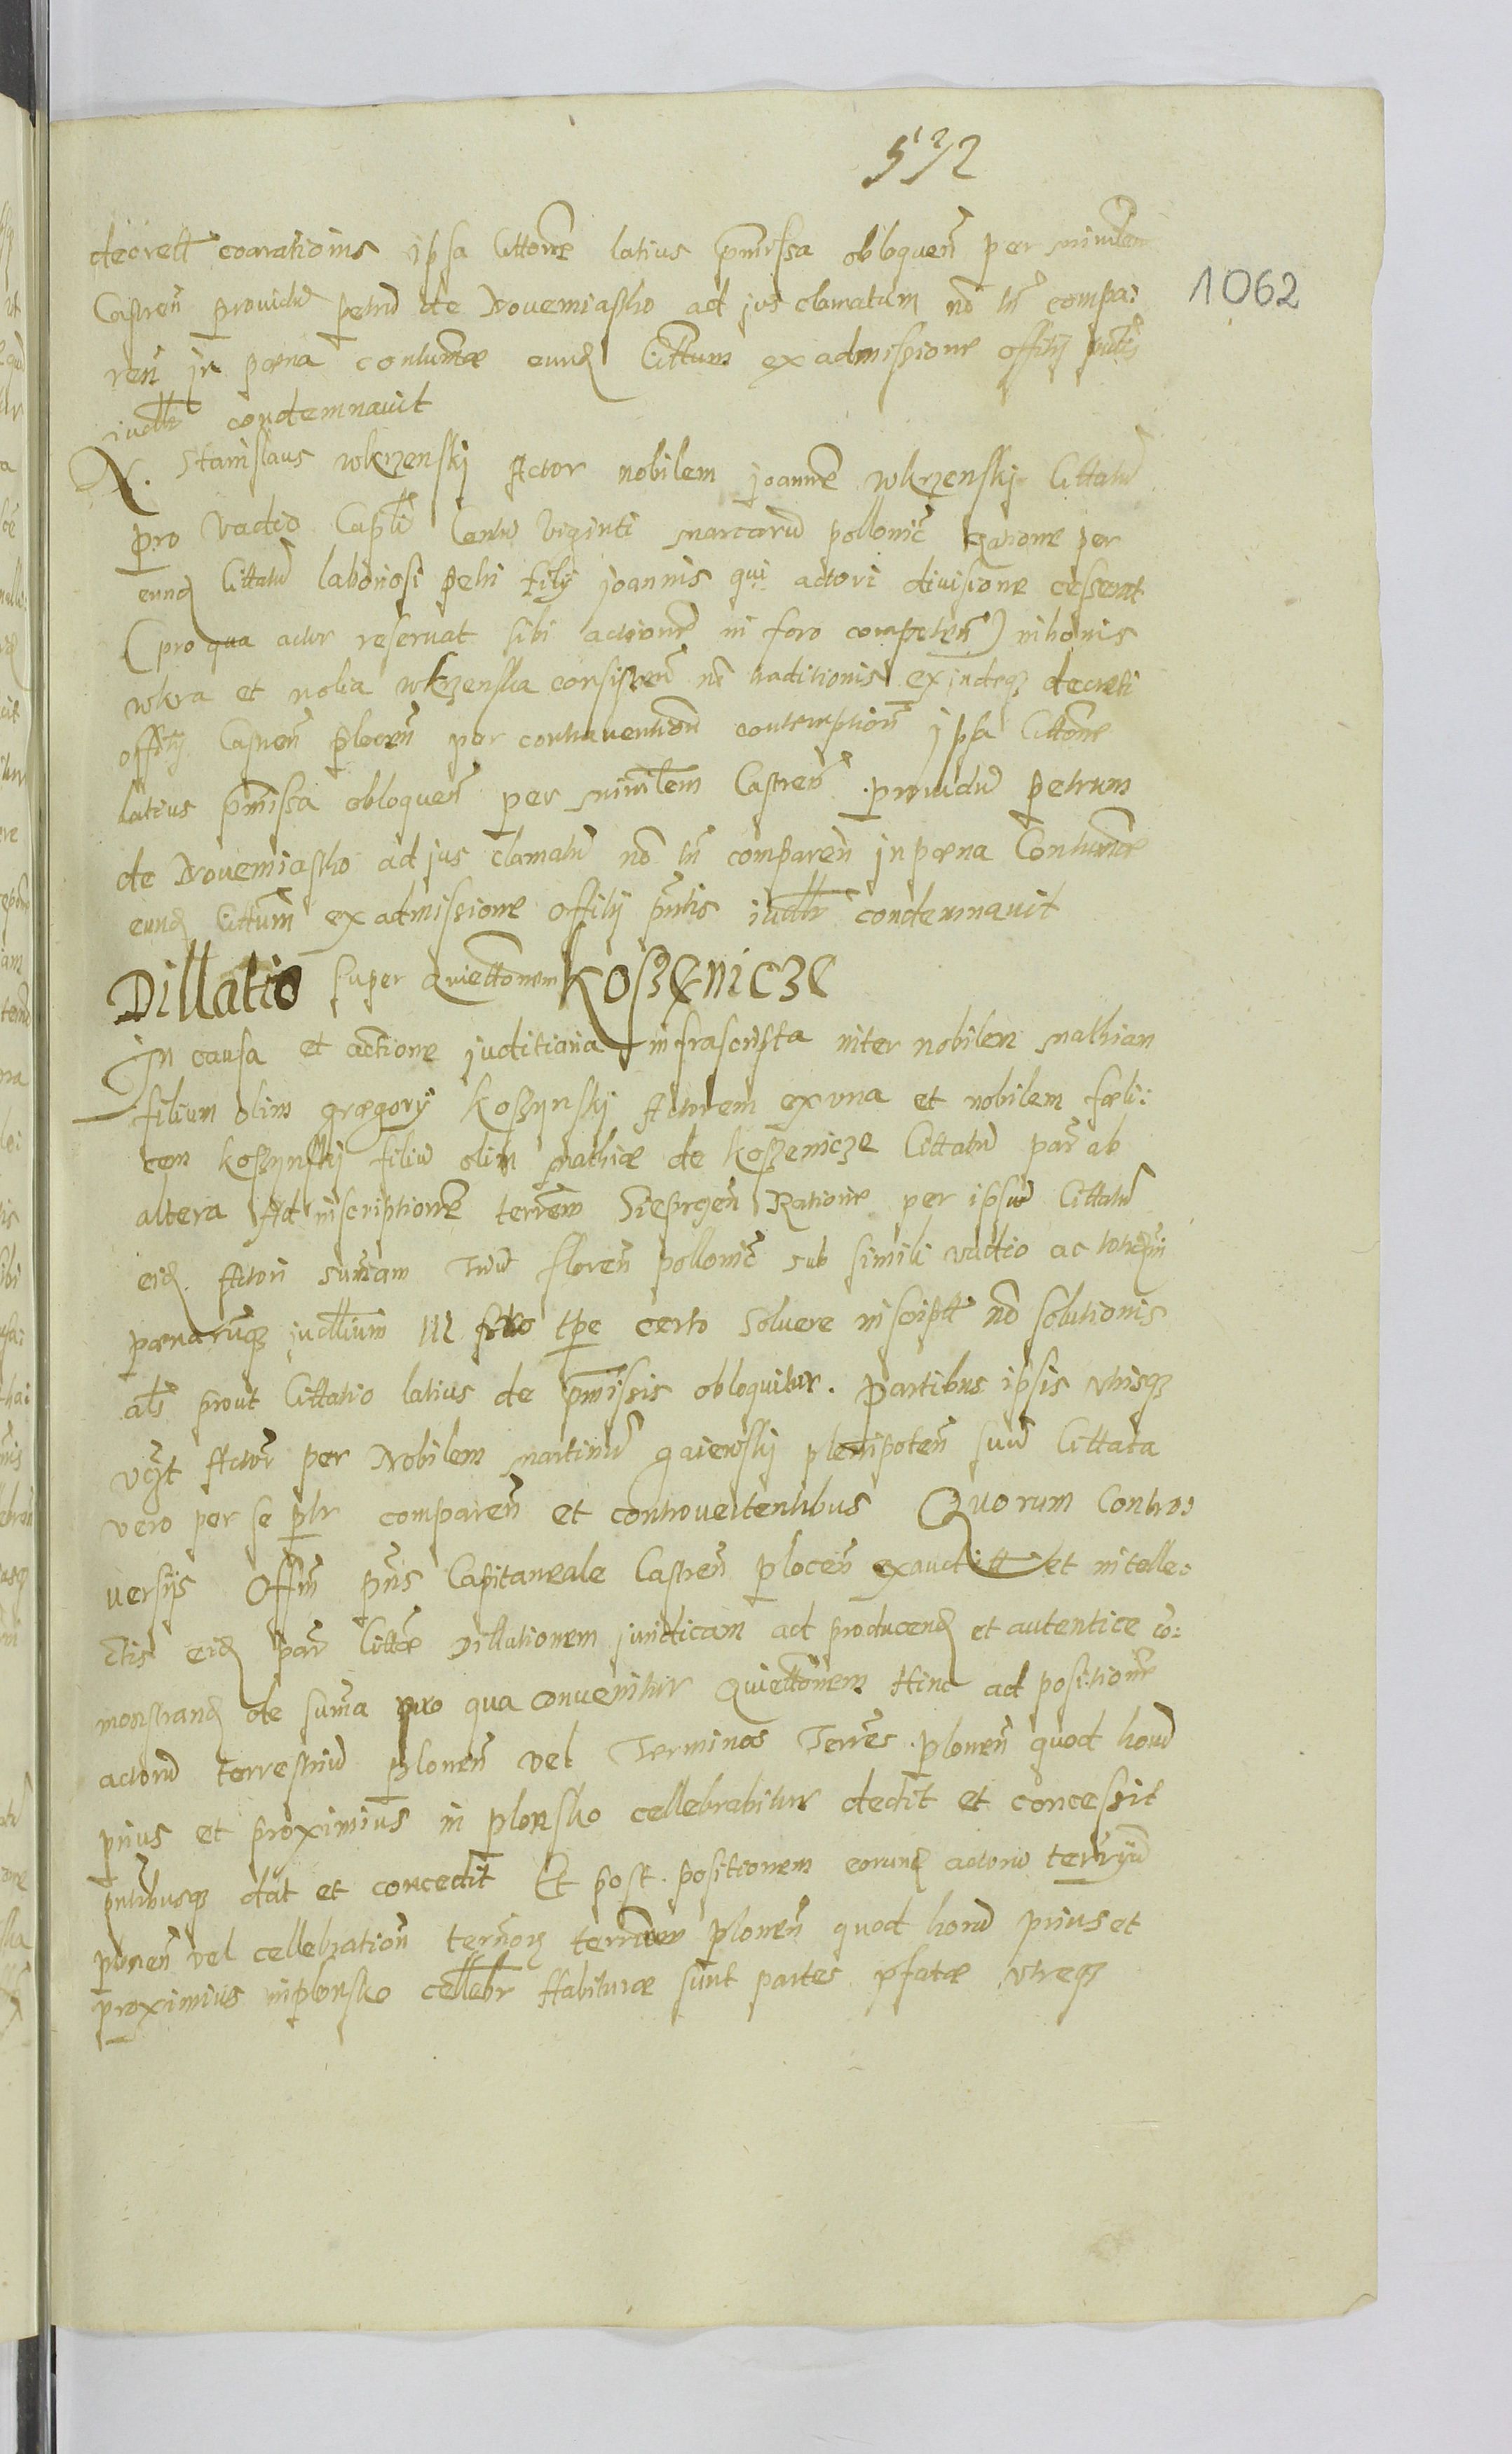 532
1062
decrett coarationis ipsa Cittone latius pmissa obloquen per ministem
Castren providu petru de Novemiasto ad jus clamatum no tn compa:
ren jn pæna contumæ eund Cittum ex admissione offity pntis
iudllr condemnavit
N. Stanislaus wkrzenskj Actor nobilem joanne wkrzenskj Cittatu
pro vadio Capli Centu viginti marcaru pollonic ratione per
eund Cittatu laboriosi petri filij joannis qui actori divisione cesserat
(pro qua actor reservat sibi actione in foro competen) in bonis
wkra et wolia wkrzenska consisten no traditionis exindeq decreti
offity Castren plocen per contraventionu contemption jpsa Cittone
latius pmissa obloquen per ministem Castren providu petrum
de Novemiasto ad jus clamatu no tn comparen jn pæna Contumæ
eund Cittum ex admissione offitij pntis iudllr condemnavit
Dillatio super Quiettonem Koszenicze
In causa et actione juditiaria infrascripta inter nobilem mathian
filium olim gregorij Koszynskj Actorem ex una et nobilem fæli:
cem Koszynskj filiu olim mathiæ de Koszenicze Cittatu par ab
altera Ad inscriptione terrem Sieprcen Ratione per ipsu Cittatu
eid Actori summam Triu floren pollonic sub simili vadio ac
pænaruq judllium III foro tpe certo solvere inscript no solutionis
als prout Cittatio latius de pmissis obloquitur. Partibus ipsis utrisq
uqt Actor per Nobilem martinu gaiewskj plenipoten suu Cittata
vero per se plr comparen et controvertentibus Quorum Contro:
versijs Offm pns Capitaneale Castren plocen exauditt et intelle:
ctis eid par Cittæ Dillationem juridicam ad producend et autentice co:
monstrand de suma pro qua convenitur Quiettonem Hinc ad positione
actoru terrestriu plonen vel Terminos Terres plonen quod horu
prius et proximius in plonsko cellebrabitur dedit et concessit
pntibusq dat et concedit Et post positionem eorund actoru terryu
plonen vel cellebration termoru terrium plonen quod horu prius et
proximius in plonsko cellebr Habituræ sunt partes pfatæ utreq